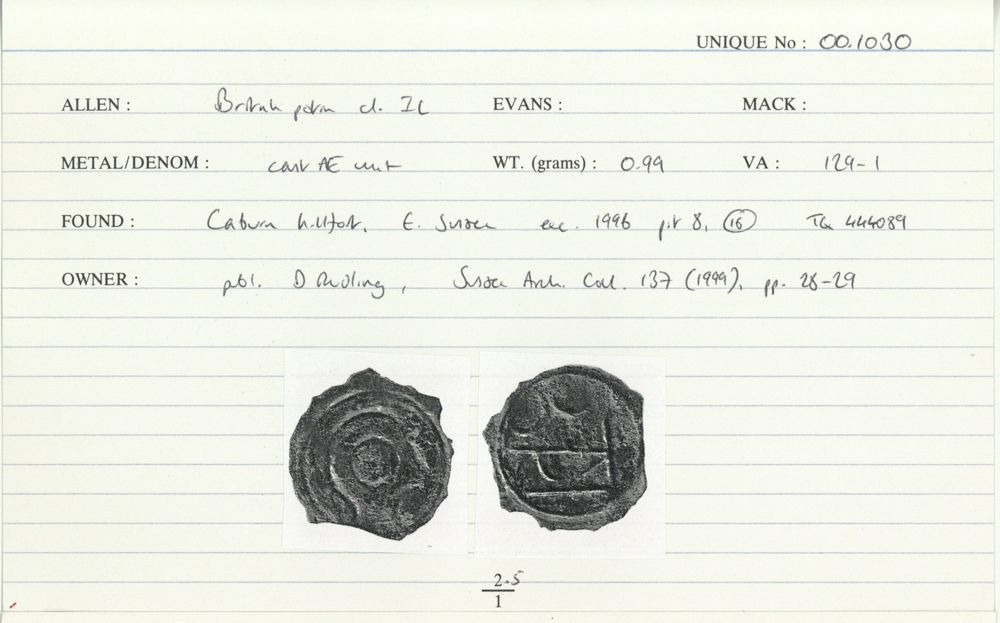 UNIQUE No : 00.1030
ALLEN : British potin cl. IL EVANS : MACK :
METAL/DENOM : cast AE unit WT. (grams) : 0.99 VA : 129-1
FOUND : Caburn hillfort, E. Sussex exc. 1996 pit 8, 16 TQ 444089
OWNER : publ. D Rudling, Sussex Arch. Coll. 137 (1999), pp. 28-29
2.5
1